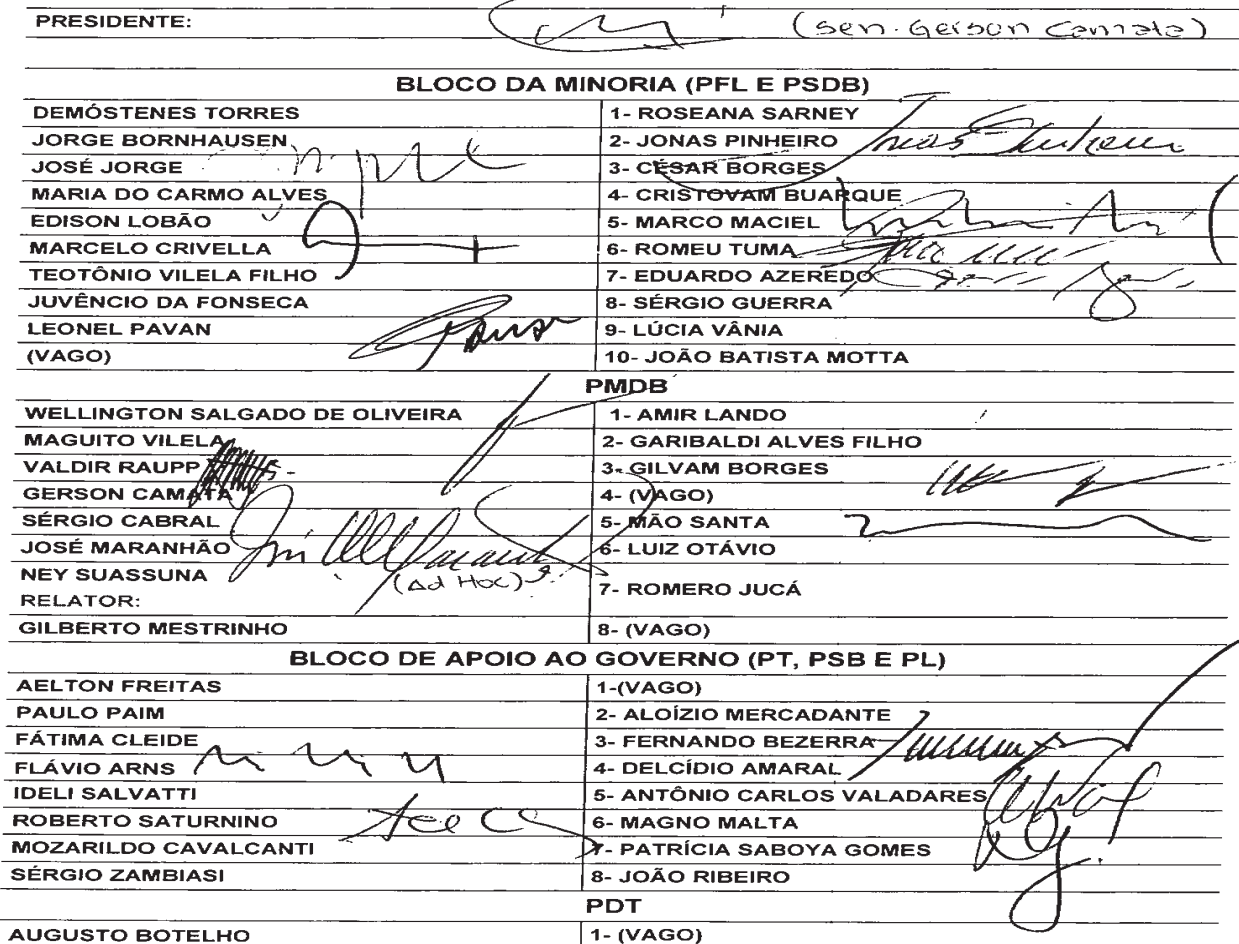 PRESIDENTE: (sen. Gerson Camata)
BLOCO DA MINORIA (PFL E PSDB)
DEMÓSTENES TORRES 1- ROSEANA SARNEY
JORGE BORNHAUSEN 2- JONAS PINHEIRO
JOSÉ JORGE 3- CÉSAR BORGES
MARIA DO CARMO ALVES 4- CRISTOVAM BUARQUE
EDISON LOBÃO 5- MARCO MACIEL
MARCELO CRIVELLA 6- ROMEU TUMA
TEOTÔNIO VILELA FILHO 7- EDUARDO AZEREDO
JUVÊNCIO DA FONSECA 8- SÉRGIO GUERRA
LEONEL PAVAN 9- LÚCIA VÂNIA
(VAGO) 10- JOÃO BATISTA MOTTA
PMDB
WELLINGTON SALGADO DE OLIVEIRA 1- AMIR LANDO
MAGUITO VILELA 2- GARIBALDI ALVES FILHO
VALDIR RAUPP 3- GILVAM BORGES
GERSON CAMATA 4- (VAGO)
SÉRGIO CABRAL 5- MÃO SANTA
JOSÉ MARANHÃO 6- LUIZ OTÁVIO
NEY SUASSUNA (Ad Hoc) 7- ROMERO JUCÁ
RELATOR:
GILBERTO MESTRINHO 8- (VAGO)
BLOCO DE APOIO AO GOVERNO (PT, PSB E PL)
AELTON FREITAS 1-(VAGO)
PAULO PAIM 2- ALOÍZIO MERCADANTE
FÁTIMA CLEIDE 3- FERNANDO BEZERRA
FLÁVIO ARNS 4- DELCÍDIO AMARAL
IDELI SALVATTI 5- ANTÔNIO CARLOS VALADARES
ROBERTO SATURNINO 6- MAGNO MALTA
MOZARILDO CAVALCANTI 7- PATRÍCIA SABOYA GOMES
SÉRGIO ZAMBIASI 8- JOÃO RIBEIRO
PDT
AUGUSTO BOTELHO 1- (VAGO)